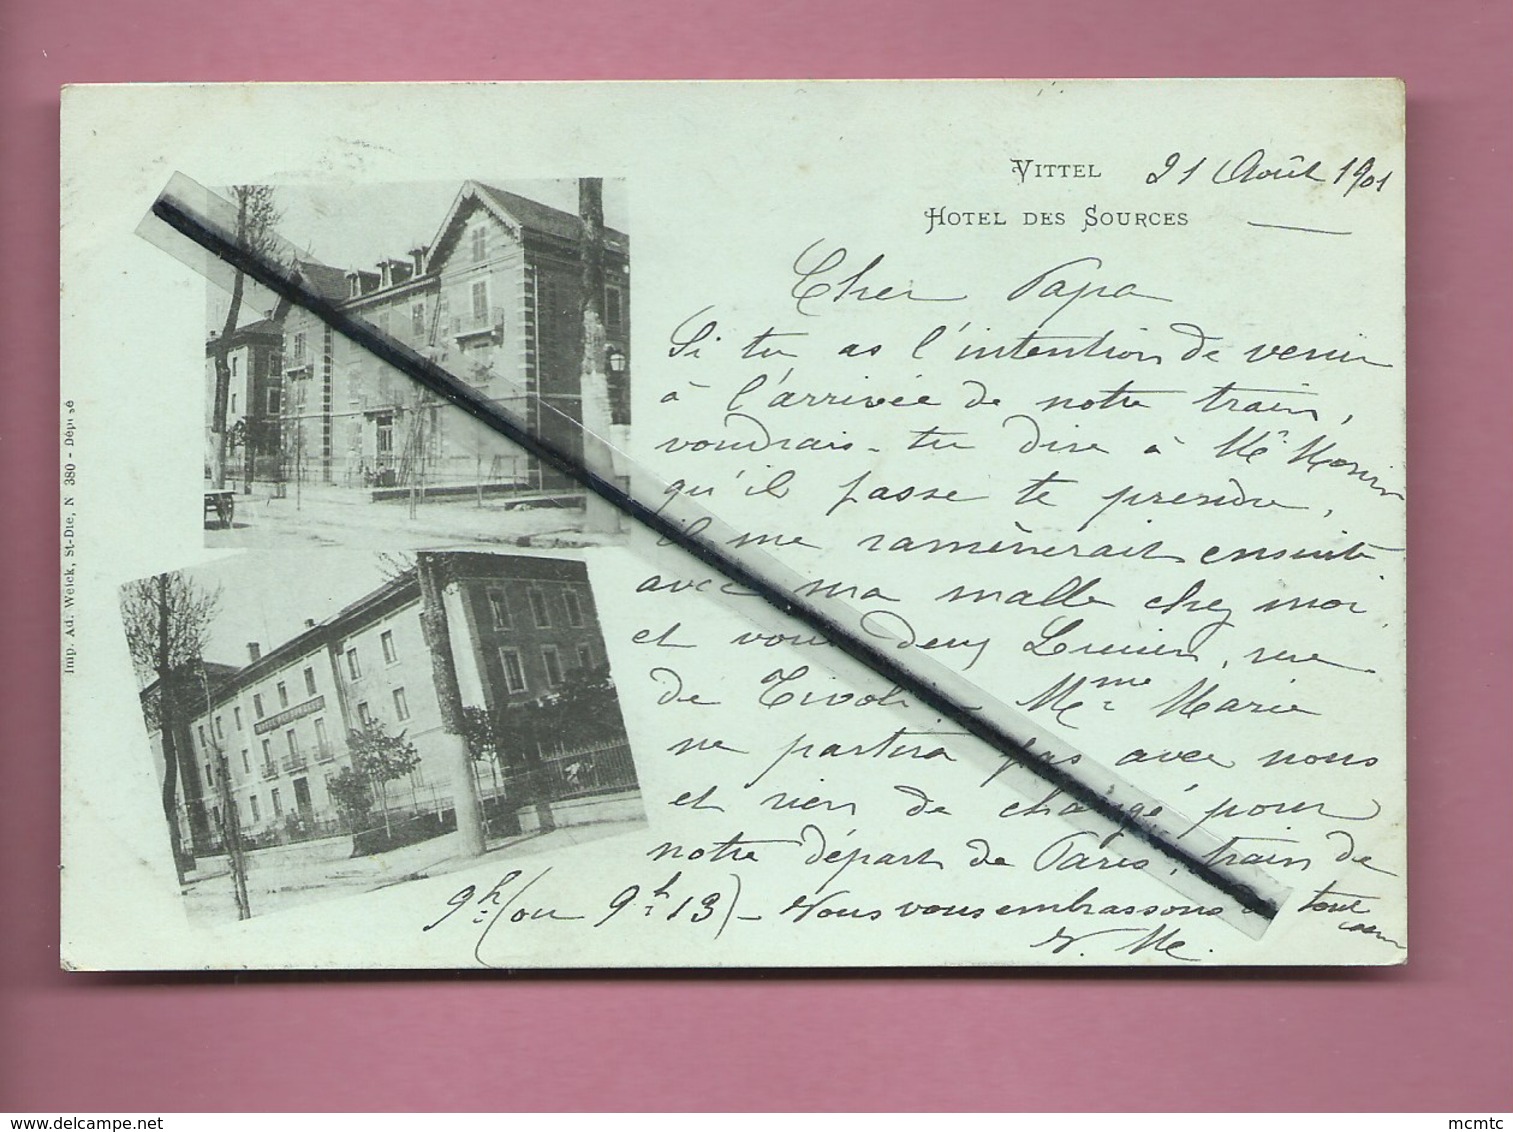 VITTEL 21 Août 1901
HOTEL DES SOURCES
Cher Papa
Si tu as l'intention de venir
à l'arrivée de notre train,
voudrais-tu dire à Mr
qu'il passe te prendre,
il me ramènerait ensuite
avec ma malle chez moi
et vous deux Lucien, rue
de Tivoli - Mme Marie
ne partira pas avec nous
et rien de changé pour
notre départ de Paris, train de
9h: (ou 9h: 13) - Nous vous embrassons de tout
cœur
Imp. Ad. Weick, St-Dié, N 380 - Déposé
www.delcampe.net
mcmtc